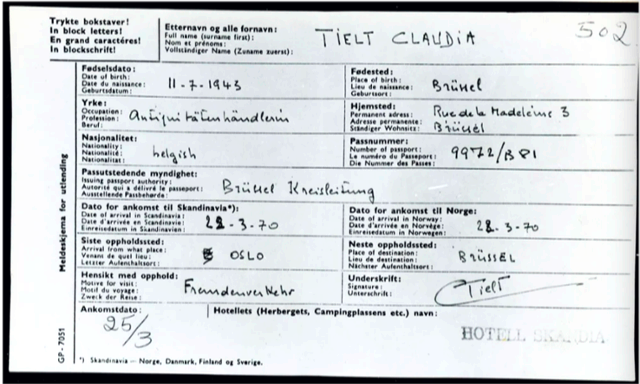 Trykte bokstaver!
In block letters!
En grand caractéres!
In blockschrift!
Etternavn og alle fornavn:
Full name (surname first):
Nom et prénoms:
Vollständiger Name (Zuname zuerst):
TIELT CLAUDIA
502
Fødselsdato:
Date of birth:
Date du naissance:
Geburtsdatum:
11-7-1943
Fødested:
Place of birth:
Lieu de naissance:
Geburtsort:
Brüssel
Yrke:
Occupation:
Profession:
Beruf:
Antiquitätenhändlerin
Hjemsted:
Permanent adress:
Adresse permanente:
Ständiger Wohnsitz:
Rue de la Madeleine 3
Brüssel
Nasjonalitet:
Nationality:
Nationalité:
Nationalitat:
belgish
Passnummer:
Number of passport:
Le numéro du Passeport:
Die Nummer des Passes:
9972/BPI
Passutstedende myndighet:
Issuing passport authority:
Autorité qui a délivré le passeport:
Ausstellende Passbehørde:
Brüssel Kreisleitung
Dato for ankomst til Skandinavia*):
Date of arrival in Scandinavia:
Date d'arrivée en Scandinavie:
Einreisedatum in Skandinavien:
-3-70
Dato for ankomst til Norge:
Date of arrival in Norway:
Date d'arrivée en Norvége:
Einreisedatum in Norwegen:
-3-70
Siste oppholdssted:
Arrival from what place:
Venant de quel lieu:
Letzter Aufenchaltsort:
OSLO
Neste oppholdssted:
Place of destination:
Lieu de destination:
Nächster Aufenchaltsort:
BRÜSSEL
Hensikt med opphold:
Motive for visit:
Motif du voyage:
Zweck der Reise:
Fremdenverkehr
Underskrift:
Signature:
Unterschrift:
Tielt
Ankomstdato:
25/3
Hotellets (Herbergets, Campingplassens etc.) navn:
HOTELL SKANDIA
*) Skandinavia — Norge, Danmark, Finland og Sverige.
Meldeskjema for utlending
GP - 7051